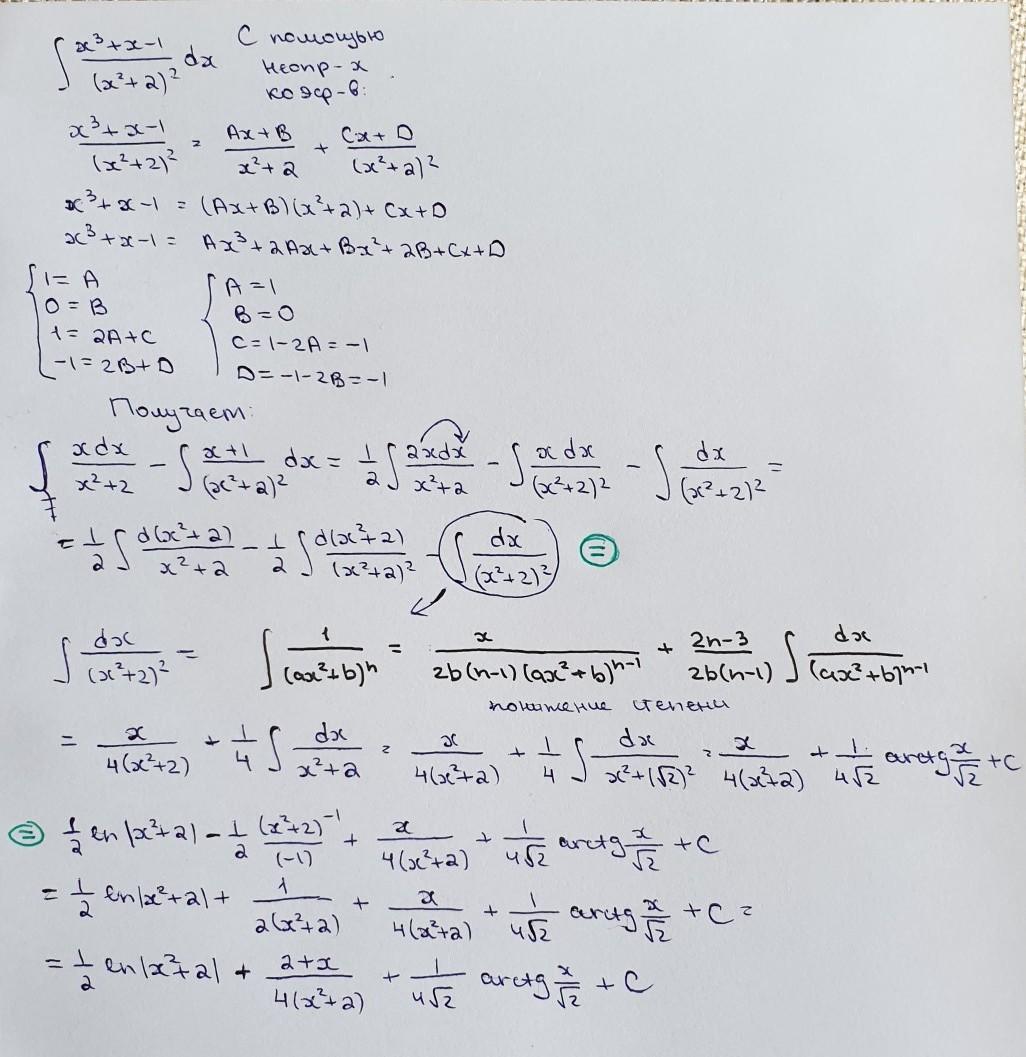 ∫ (x³+x-1)/(x²+2)² dx С помощью
неопр-х
коэф-в:
(x³+x-1)/(x²+2)² = (Ax+B)/(x²+2) + (Cx+D)/(x²+2)²
x³+x-1 = (Ax+B)(x²+2)+Cx+D
x³+x-1 = Ax³+2Ax+Bx²+2B+Cx+D
{ 1=A { A=1
0=B B=0
1=2A+C C=1-2A=-1
-1=2B+D D=-1-2B=-1
Получаем:
∫ xdx/(x²+2) - ∫ (x+1)/(x²+2)² dx = 1/2 ∫ 2xdx/(x²+2) - ∫ x dx/(x²+2)² - ∫ dx/(x²+2)² =
= 1/2 ∫ d(x²+2)/(x²+2) - 1/2 ∫ d(x²+2)/(x²+2)² - ∫ dx/(x²+2)² =
∫ dx/(x²+2)² = ∫ 1/(ax²+b)ⁿ = x/(2b(n-1)(ax²+b)ⁿ⁻¹) + (2n-3)/(2b(n-1)) ∫ dx/(ax²+b)ⁿ⁻¹
понижение степени
= x/(4(x²+2)) + 1/4 ∫ dx/(x²+2) = x/(4(x²+2)) + 1/4 ∫ dx/(x²+(√2)²) = x/(4(x²+2)) + 1/(4√2) arctg x/√2 + C
= 1/2 ln|x²+2| - 1/2 (x²+2)⁻¹/(-1) + x/(4(x²+2)) + 1/(4√2) arctg x/√2 + C
= 1/2 ln|x²+2| + 1/(2(x²+2)) + x/(4(x²+2)) + 1/(4√2) arctg x/√2 + C =
= 1/2 ln|x²+2| + (2+x)/(4(x²+2)) + 1/(4√2) arctg x/√2 + C